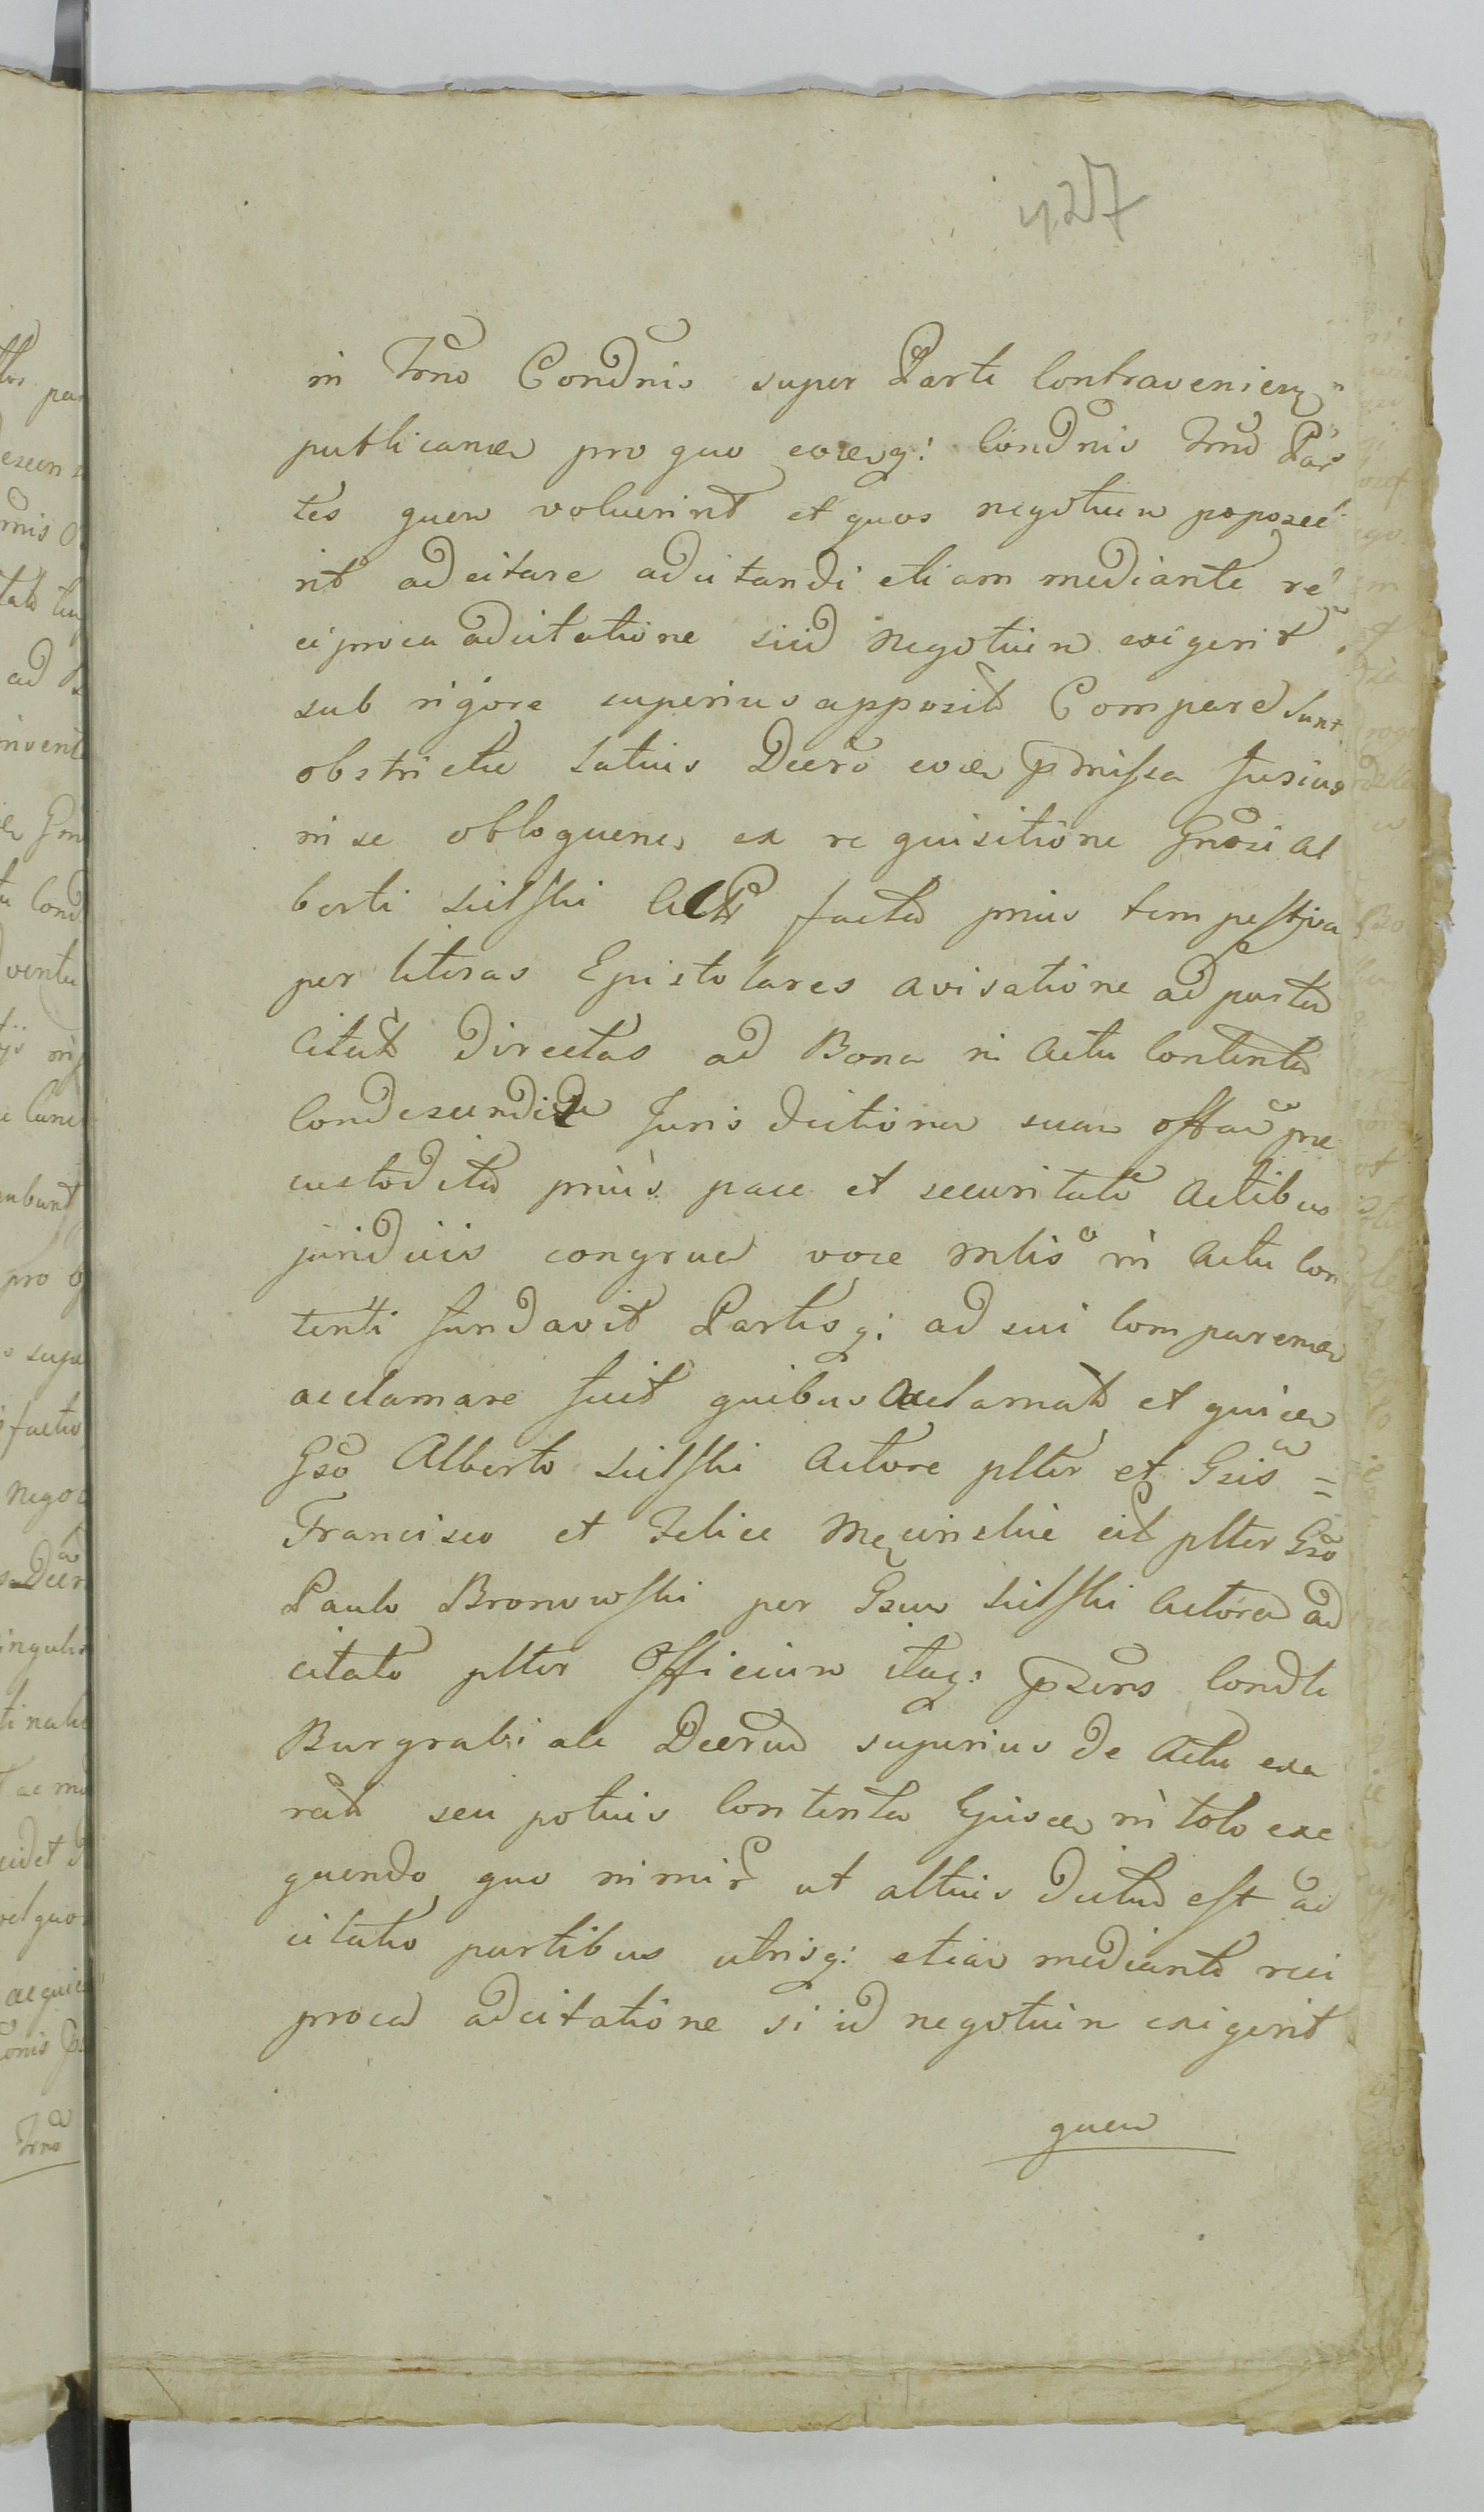 427
in Trno Condnis super Parte Contravenien
publicanda pro quo eorundq: Condnis Trno Par
tes quem voluerint et quos negotium poposce
rit adcitare adcitandi etiam mediante re
ciproca adcitatione si id negotium exigerit
sub rigore superius apposito Compare sunt
obstrictae Latius Decro pmissa fusius
in se obloquens ex requisitione Gnosi Al
berti Sulski Act facta prius tempestiva
per literas Epistolares avisatione ad partem
Citat directas ad Bona in Actu Contenta
Condescendit Jurisdictionem suam offam prae
custodita prius pace et securitate Actibus
juridicis congrua voce mlis in Actu Con
tenti fundavit Partesq: ad sui Comparendum
acclamare fecit quibus Acclamatis et quidem
Gso Alberto Sulski Actore plter et Gsis =
Francisco et Felice Męcinskie cit plter Gso
Paulo Bronowski per Gsum Sulski Actorem ad
citato plter Officium itaq: psens Condle
Burgrabiale Decrtum superius de Actu exa
rat seu potius Contenta Ejusdem in toto exe
quendo quo nimir ut altius dictum est ad
citatis partibus utrisq: etiam mediante reci
proca adcitatione si id negotium exigerit
quem